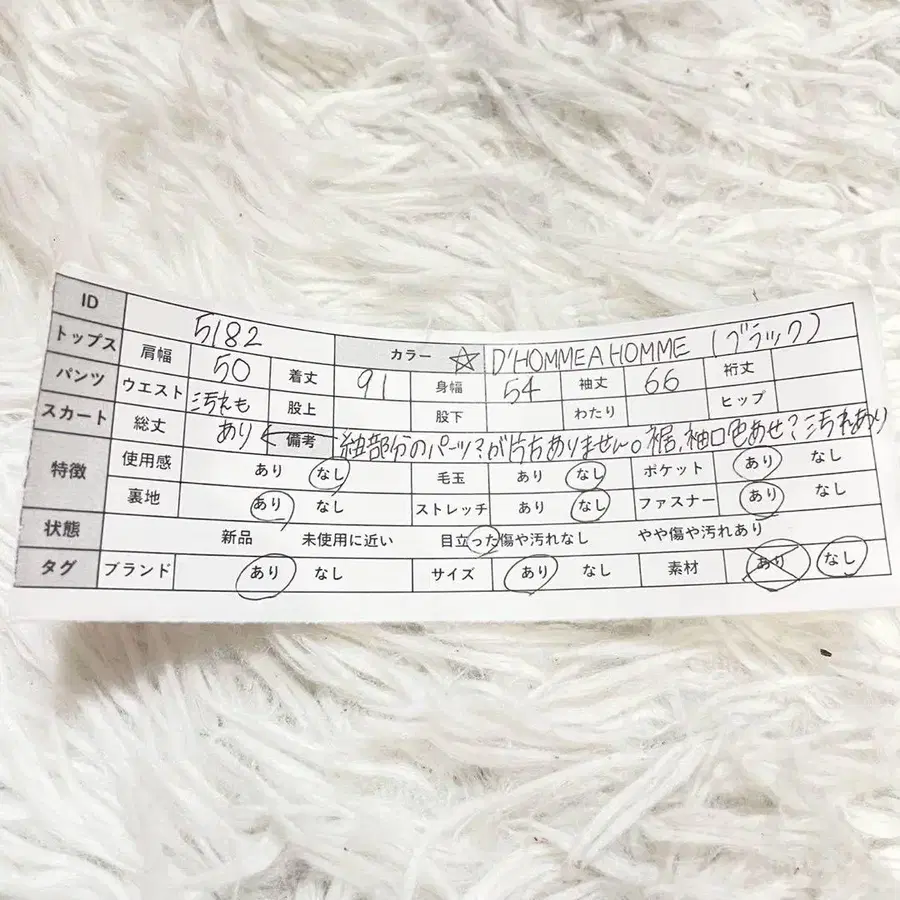 ID 5182 カラー ☆ D'HOMME A HOMME (ブラック)
トップス 肩幅 50 着丈 91 身幅 54 袖丈 66 裄丈
パンツ ウエスト 汚れも 股上 股下 わたり ヒップ
スカート 総丈 あり ← 備考 紐部分のパーツ?が片方ありません。裾、袖口色あせ?汚れあり
特徴 使用感 あり なし 毛玉 あり なし ポケット あり なし
裏地 あり なし ストレッチ あり なし ファスナー あり なし
状態 新品 未使用に近い 目立った傷や汚れなし やや傷や汚れあり
タグ ブランド あり なし サイズ あり なし 素材 あり なし